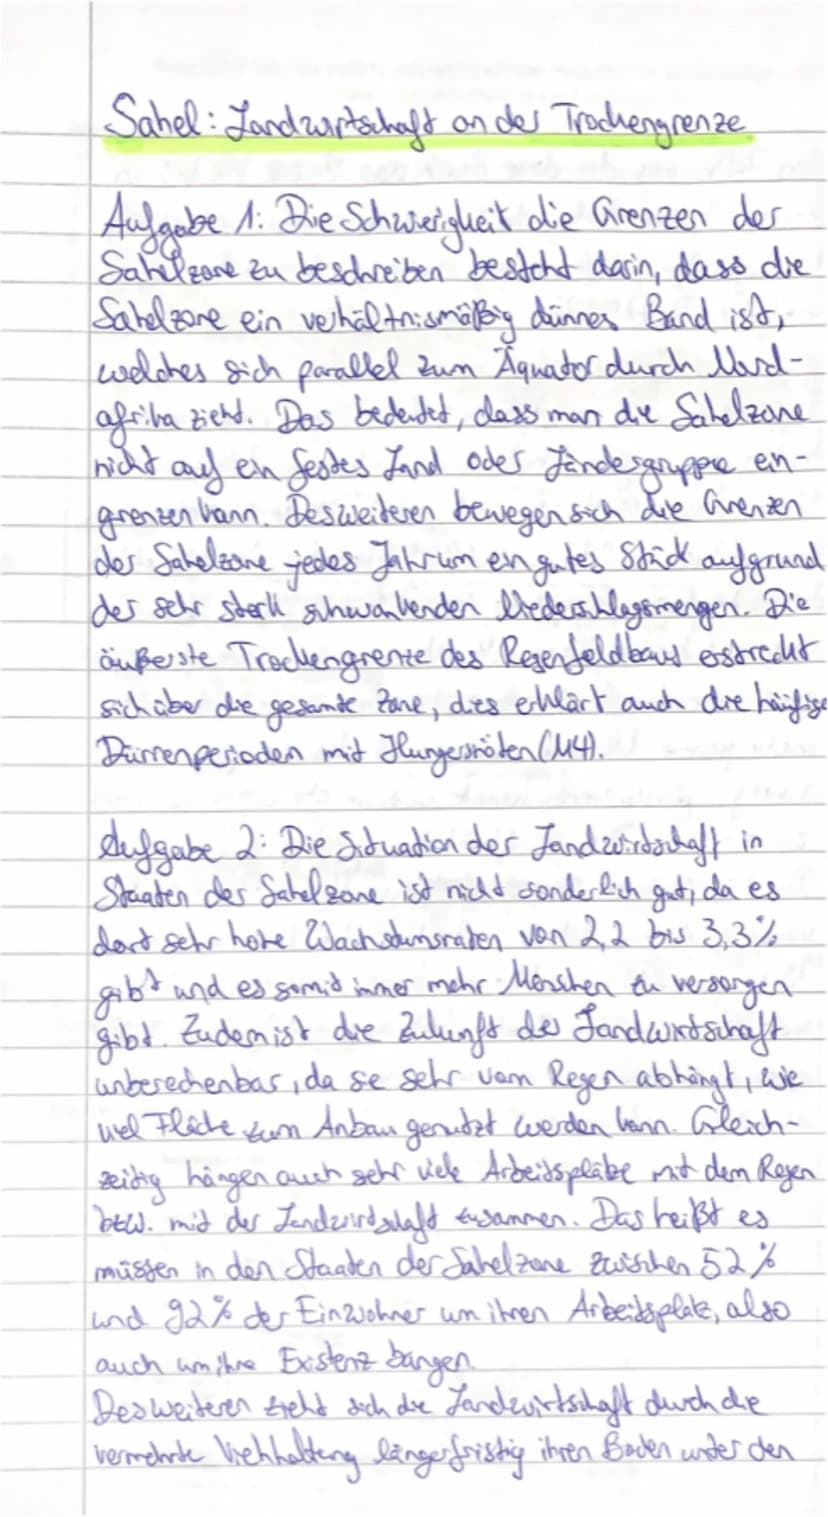 Sahel: Landwirtschaft an der Trockengrenze
Aufgabe 1: Die Schwierigkeit die Grenzen der
Sahelzone zu beschreiben besteht darin, dass die
Sahelzone ein verhältnismäßig dünnes Band ist,
welches sich parallel zum Äquator durch Nord-
afrika zieht. Das bedeutet, dass man die Sahelzone
nicht auf ein festes Land oder Ländesgruppe ein-
grenzen kann. Desweiteren bewegen sich die Grenzen
der Sahelzone jedes Jahr um ein gutes Stück aufgrund
der sehr stark schwankenden Niederschlagsmengen. Die
äußerste Trockengrenze des Regenfeldbaus erstreckt
sich über die gesamte Zone, dies erklärt auch die häufige
Dürrenperioden mit Hungersnöten (M4).
Aufgabe 2: Die Situation der Landwirtschaft in
Staaten der Sahelzone ist nicht sonderlich gut, da es
dort sehr hohe Wachstumsraten von 2,2 bis 3,3%
gibt und es somit immer mehr Menschen zu versorgen
gibt. Zudem ist die Zukunft der Landwirtschaft
unberechenbar, da se sehr vom Regen abhängt, wie
viel Fläche zum Anbau genutzt werden kann. Gleich-
zeitig hängen auch sehr viele Arbeitsplätze mit dem Regen
bzw. mit der Landwirtschaft zusammen. Das heißt es
müssen in den Staaten der Sahelzone zwischen 52%
und 92% der Einwohner um ihren Arbeitsplatz, also
auch um ihre Existenz bangen.
Desweiteren zieht sich die Landwirtschaft durch die
vermehrte Viehhaltung längerfristig ihren Boden unter den